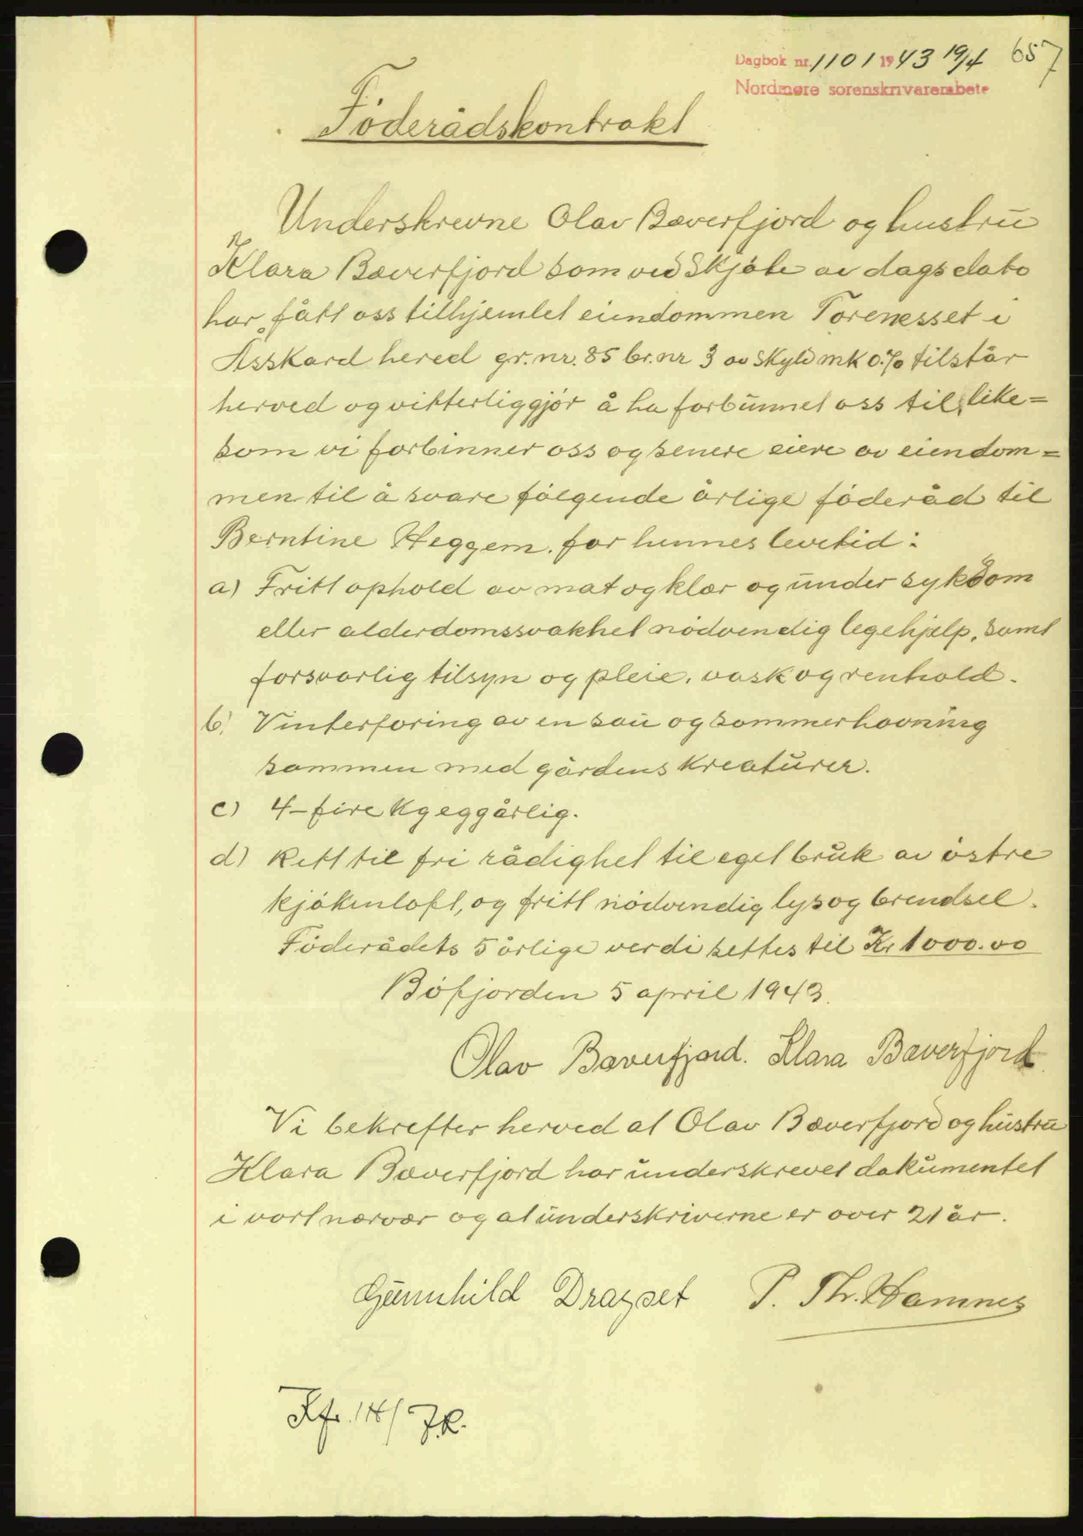 Dagbok nr. 1101 1943 19/4 657
Nordmøre sorenskrivarembete
Föderådskontrakt
Underskrevne Olav Bæverfjord og hustru
Klara Bæverfjord som ved Skjöte av dags dato
har fått oss tilhjemlet eiendommen Torenesset i
Åsskard hered gr.nr. 85 br.nr 3 av Skyld mk 0.70 tilstår
herved og vitterliggjör å ha forbunnet oss til, like=
som vi forbinner oss og senere eiere av eiendom=
men til å svare fölgende årlige föderåd til
Berntine Heggem. for hennes levetid:
a) Fritt ophold av mat og klær og under sykdom
eller alderdomssvakhet nödvendig legehjelp, samt
forsvarlig tilsyn og pleie, vask og renhold.
b) Vinterforing av en sau og sommerhavning
sammen med gårdens Kreaturer.
c) 4- fire Kg egg årlig.
d) Rett til fri rådighet til eget bruk av östre
kjökenloft, og fritt nödvendig lys og brendsel.
Föderådets 5 årlige verdi settes til Kr 1000.00
Böfjorden 5 april 1943.
Olav Bæverfjord. Klara Bæverfjord
Vi bekrefter herved at Olav Bæverfjord og hustru
Klara Bæverfjord har underskrevet dokumentet
i vort nærvær og at underskriverne er over 21 år.
Gunnhild Dragset P. Th. Hamnes
Kfr. 14/ J.R.